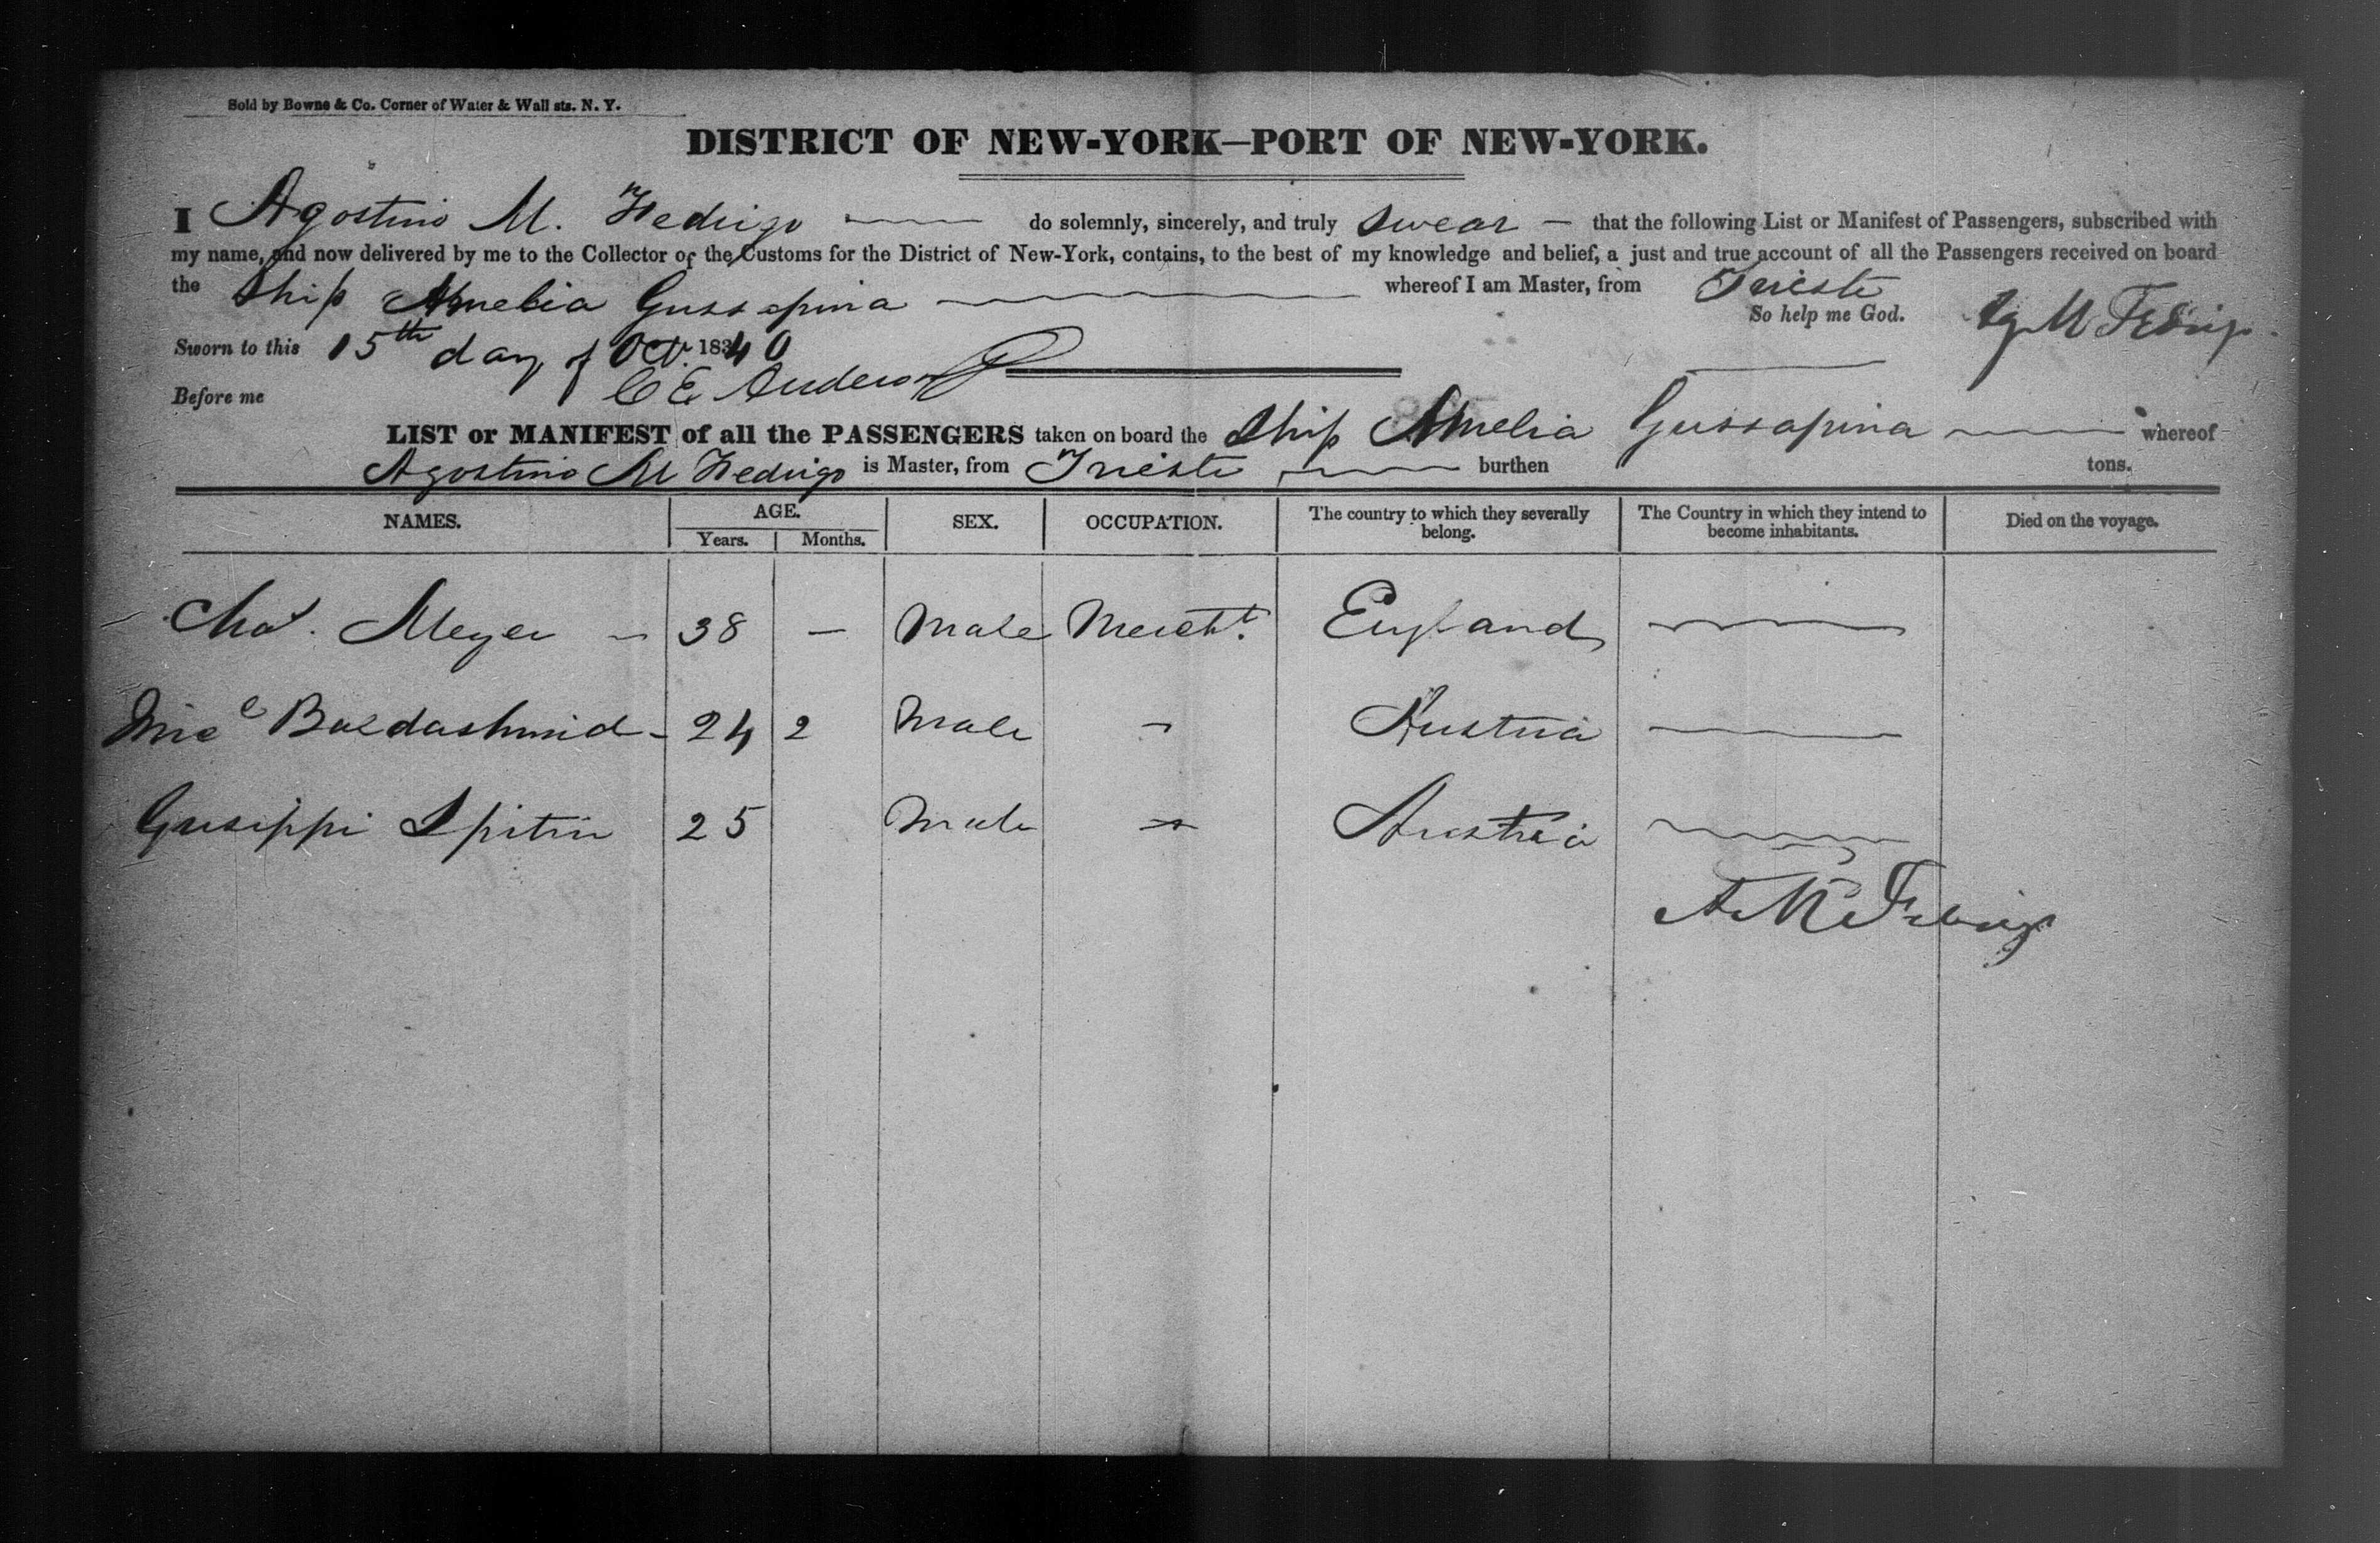 Sold by Bowne & Co. Corner of Water & Wall sts. N. Y.
DISTRICT OF NEW-YORK—PORT OF NEW-YORK.
I Agostino M. Fedrigo do solemnly, sincerely, and truly swear — that the following List or Manifest of Passengers, subscribed with
my name, and now delivered by me to the Collector of the Customs for the District of New-York, contains, to the best of my knowledge and belief, a just and true account of all the Passengers received on board
the Ship Amelia Gussapina whereof I am Master, from Trieste
So help me God.
Sworn to this 15th day of Oct. 1840
Before me C E Anderson
LIST or MANIFEST of all the PASSENGERS taken on board the Ship Amelia Gussapina whereof
Agostino M Fedrigo is Master, from Trieste burthen tons.
NAMES. AGE. Years. Months. SEX. OCCUPATION. The country to which they severally belong. The Country in which they intend to become inhabitants. Died on the voyage.
Chas. Meyer — 38 — Male Mercht. England
Baldashmid — 24 2 Male — Austria
Gusippi Spitin 25 Male — Austria